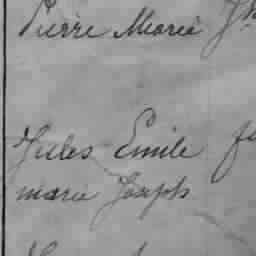 Pierre Marie
Jules Emile
marie Joseph